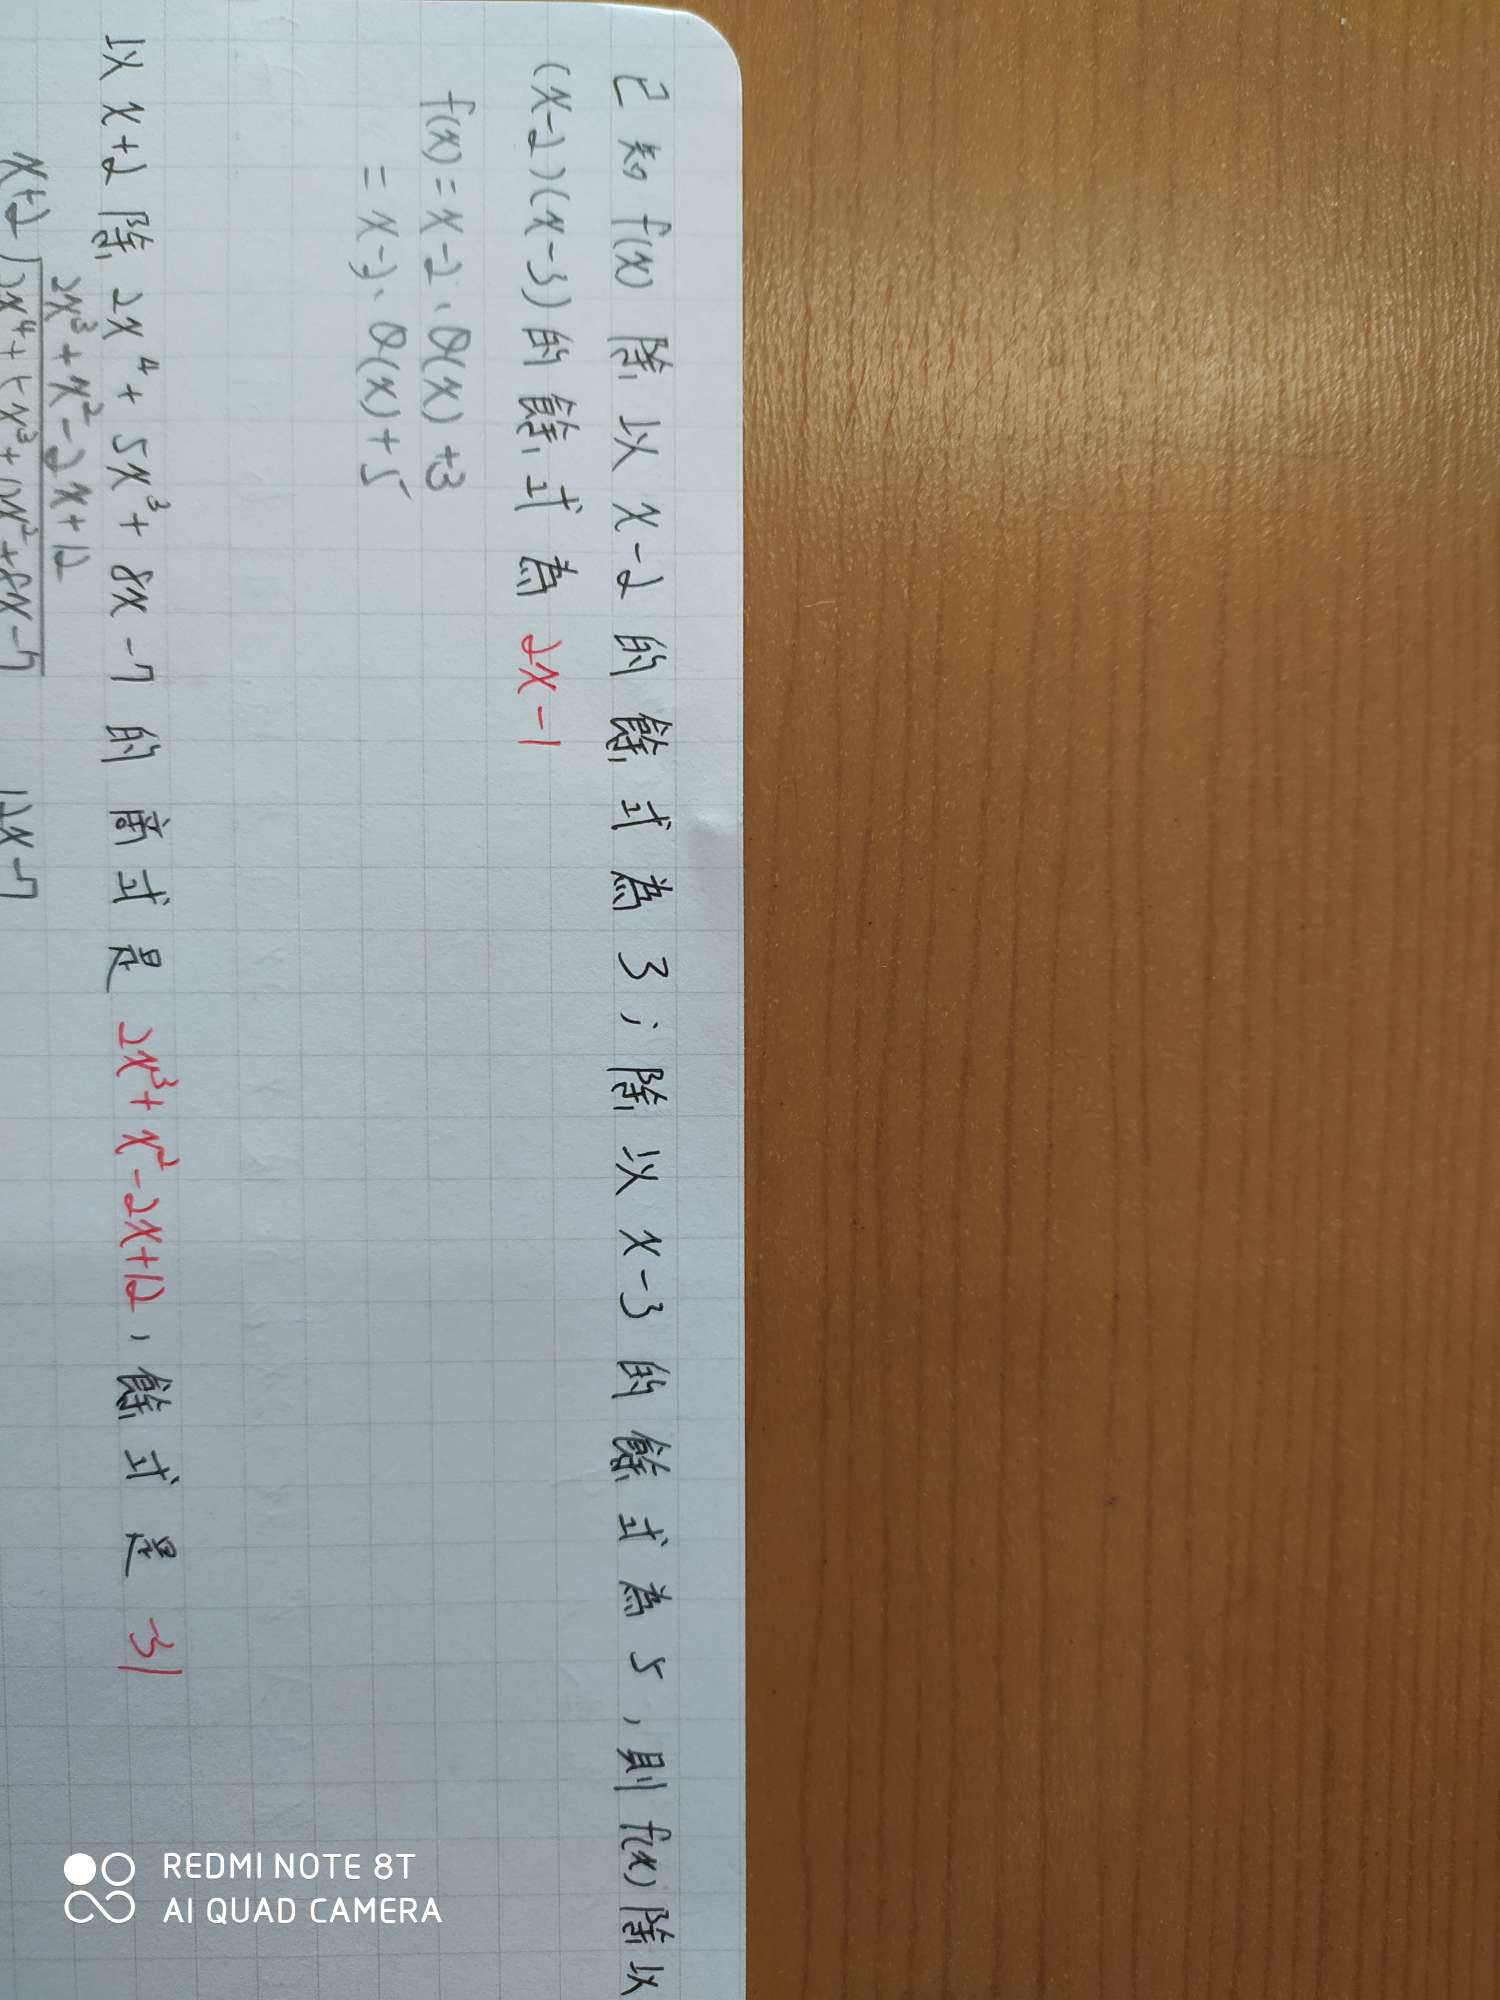 已知 f(x) 除以 x-2 的餘式為 3；除以 x-3 的餘式為 5，則 f(x) 除以
(x-2)(x-3) 的餘式為 2x-1
f(x) = x-2、Q(x) +3
= x-3、Q(x) +5
以 x+2 除 2x⁴ + 5x³ + 8x -7 的商式是 2x³ + x² - 2x+12，餘式是 -31
2x³ + x² - 2x + 12
x+2 2x⁴ + 5x³ + 0x² + 8x -7 12x -7
REDMI NOTE 8T
AI QUAD CAMERA